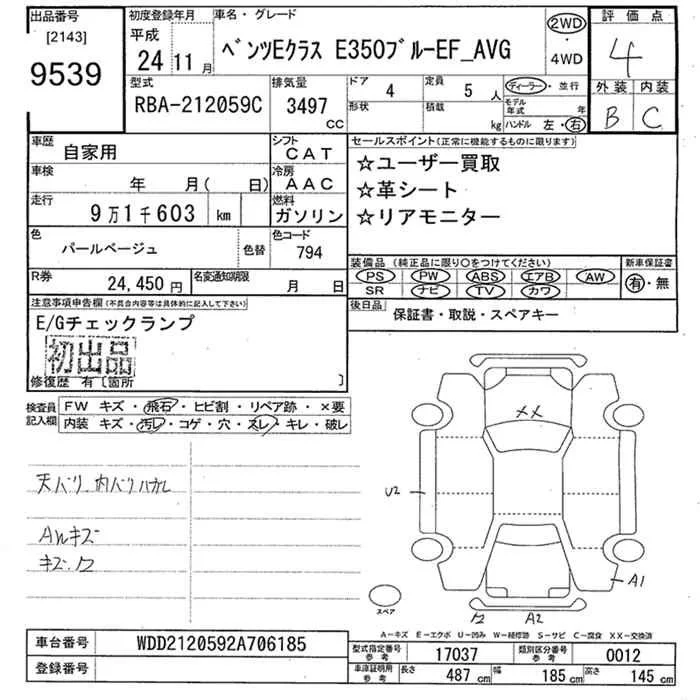 出品番号 [2143] 9539
初度登録年月 平成 24年 11月
車名・グレード ベンツEクラス E350ブルーEF_AVG
2WD・4WD
評価点 4
外装 B 内装 C
型式 RBA-212059C
排気量 3497 CC
ドア 4 形状
定員 5人 積載 kg
ディーラー・並行
モデル年式 年
ハンドル 左・右
車歴 自家用
シフト CAT
車検 年 月( 日)
冷房 AAC
走行 9万1千603 km
燃料 ガソリン
色 パールベージュ 色替
色コード 794
R券 24,450円
名変通知期限 月 日
セールスポイント(正常に機能するものに限ります)
☆ユーザー買取
☆革シート
☆リアモニター
装備品 (純正品に限り○をつけてください)
PS PW ABS エアB AW
SR ナビ TV カワ
新車保証書 有・無
後日品 保証書・取説・スペアキー
注意事項申告欄(不具合内容等は具体的に記入して下さい)
E/Gチェックランプ
初出品
修復歴 有〔箇所 〕
検査員記入欄
FW キズ・飛石・ヒビ割・リペア跡・×要
内装 キズ・汚レ・コゲ・穴・スレ・キレ・破レ
天バリ、内バリハガレ
AWキズ
キズ.ワ
XX
U2
A1
ワ A2
スペア
A-キズ E-エクボ U-凹み W-補修跡 S-サビ C-腐食 XX-交換済
車台番号 WDD2120592A706185
登録番号
型式指定番号 参考 17037
類別区分番号 参考 0012
車庫証明用 参考 長さ 487cm 幅 185cm 高さ 145cm